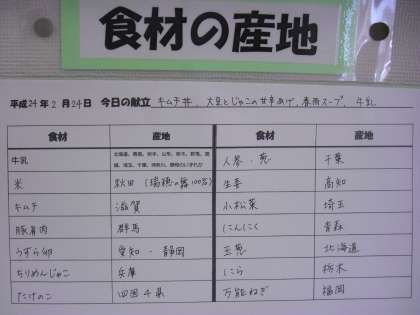 食材の産地
平成24年2月24日 今日の献立 キムチ丼、大豆とじゃこの甘辛あげ、春雨スープ、牛乳
食材 産地 食材 産地
牛乳 人参・葱 千葉
米 秋田(瑞穂の露100%) 生姜 高知
キムチ 滋賀 小松菜 埼玉
豚肩肉 群馬 にんにく 青森
うずら卵 愛知・静岡 玉葱 北海道
ちりめんじゃこ 兵庫 にら 栃木
たけのこ 四国4県 万能ねぎ 福岡